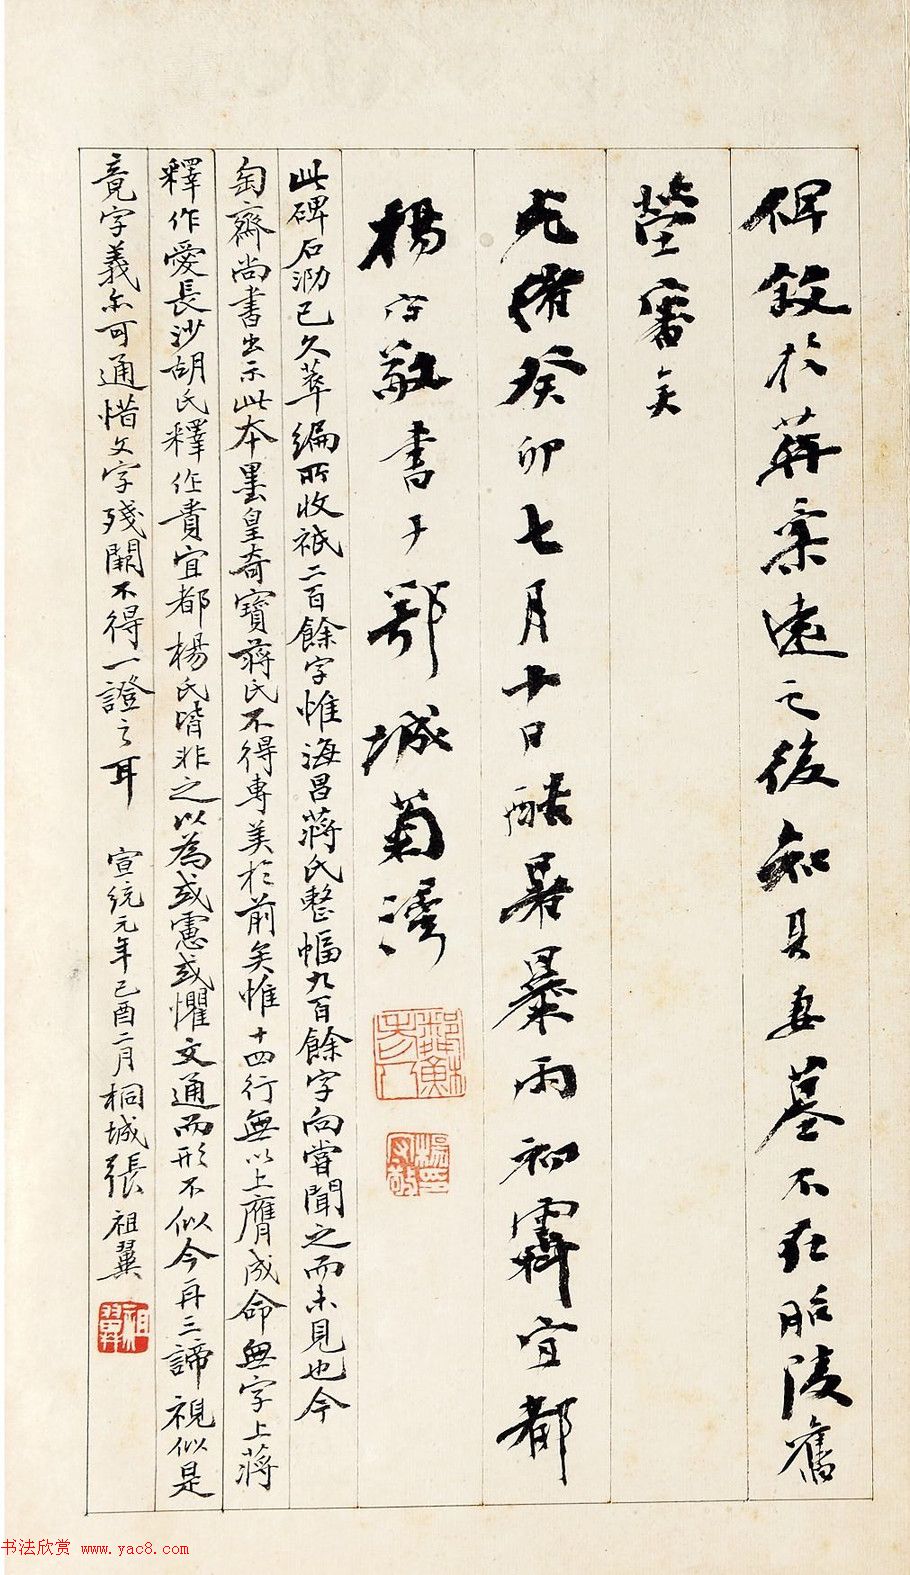 碑敘於葬宋遠之後知其妻墓不在昭陵舊
塋審矣
光緒癸卯七月十日酷暑暴雨初霽宜都
楊守敬書于鄂城菊灣
此碑石泐已久萃編所收祇二百餘字惟海昌蔣氏整幅九百餘字向嘗聞之而未見也今
匋齋尚書出示此本墨皇奇寶蔣氏不得專美於前矣惟十四行無以上膺成命無字上蔣
釋作愛長沙胡氏釋作貴宜都楊氏皆非之以為或慮或懼文通而形不似今再三諦視似是
竟字義亦可通惜文字殘闕不得一證之耳 宣統元年己酉二月桐城張祖翼
楊守敬印
祖翼
书法欣赏 www.yac8.com